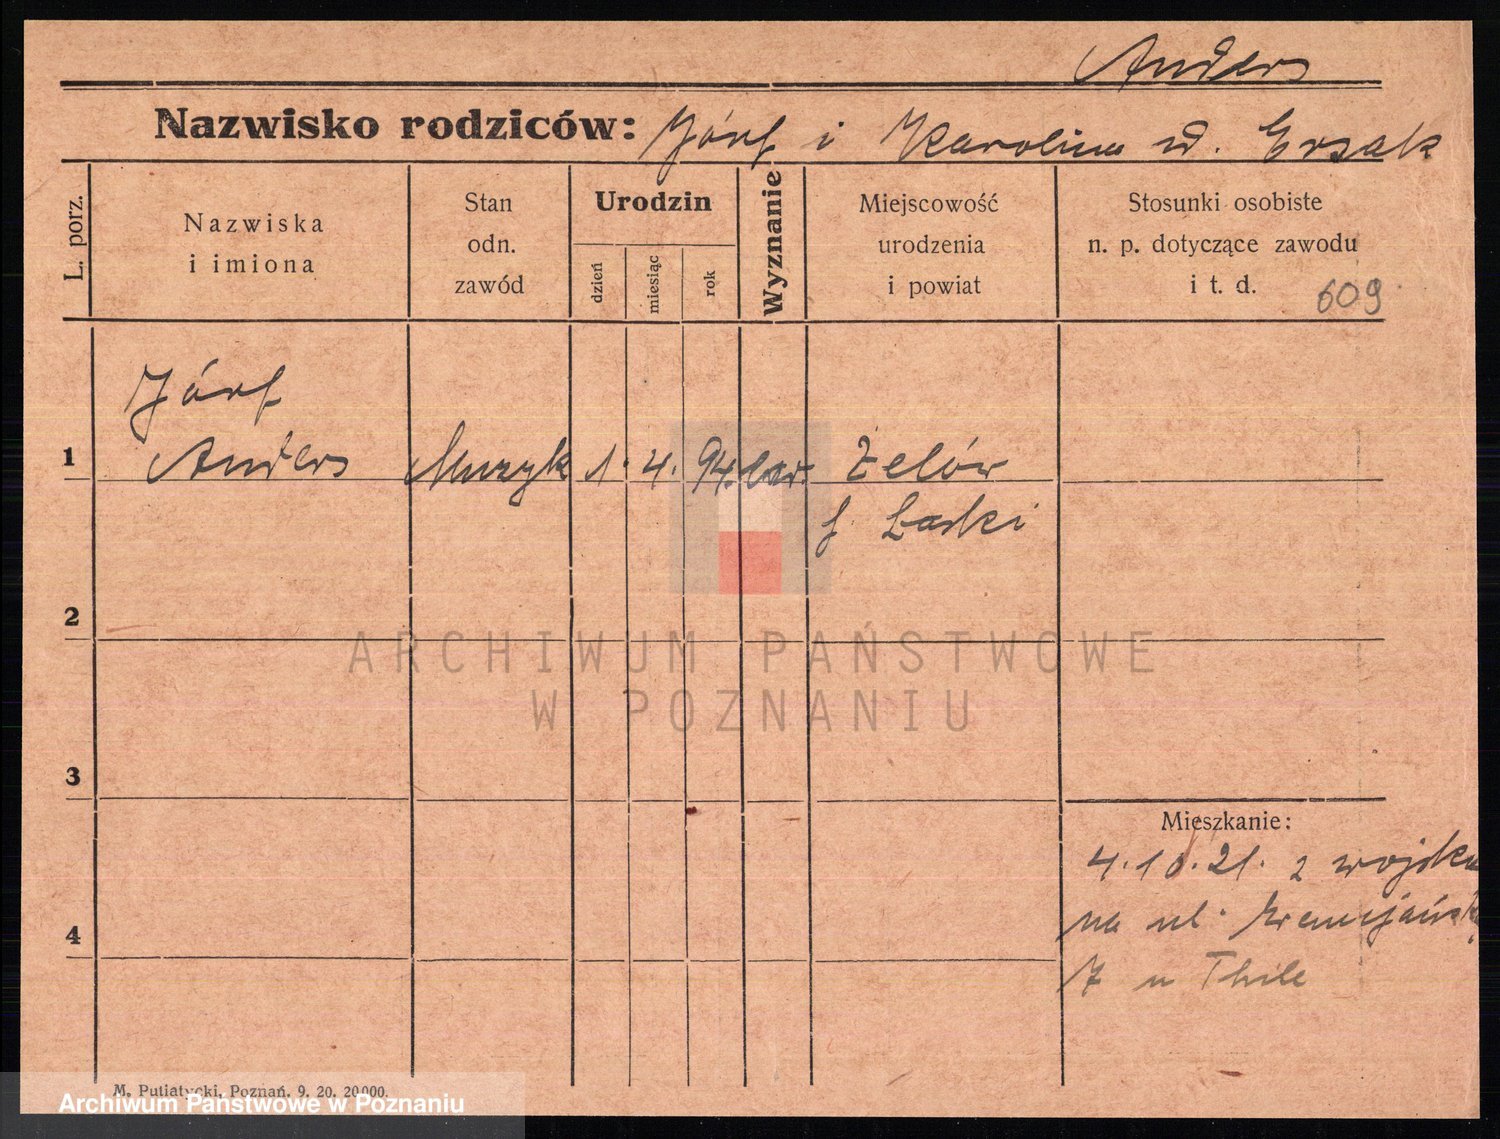 Anders
Nazwisko rodziców: Józef i Karolina d. Ersak
L. porz.
Nazwiska
i imiona
Stan
odn.
zawód
Urodzin
dzień
miesiąc
rok
Wyznanie
Miejscowość
urodzenia
i powiat
Stosunki osobiste
n. p. dotyczące zawodu
i t. d. 609
Józef
1 Anders Muzyk 1. 4. 94. Zelów
Łaski
2
ARCHIWUM PAŃSTWOWE
W POZNANIU
3
Mieszkanie:
4.10.21. z wojska
4
na ul.
7 u Thile
M. Putiatycki, Poznań. 9. 20. 20000.
Archiwum Państwowe w Poznaniu